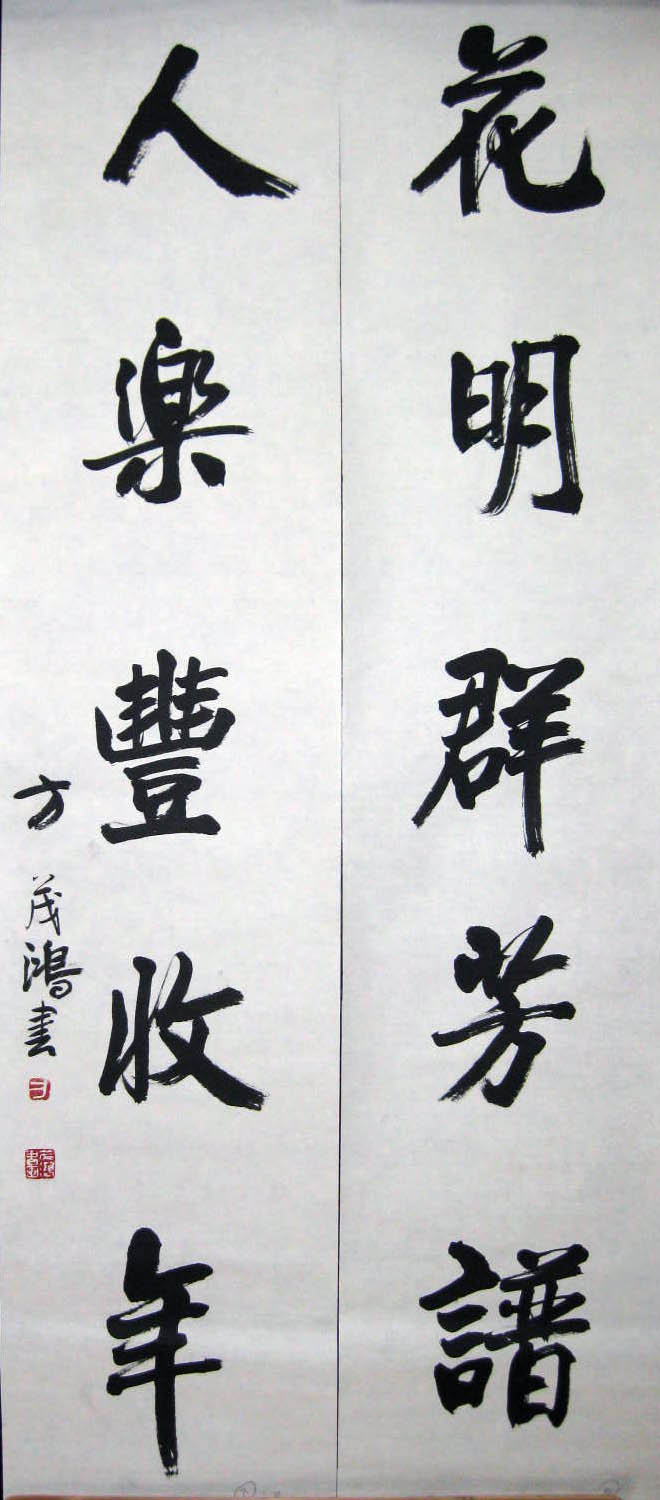 花明群芳譜
人樂豐收年
方茂鴻書